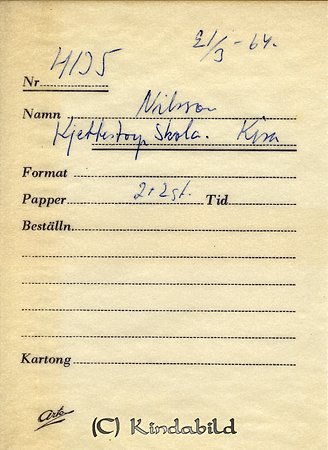 21/3-64.
Nr 4135
Namn Nilsson
Kjettestorp Skola. Kisa
Format
Papper 2+2 st. Tid
Beställn.
Kartong
Ark
(C) Kindabild